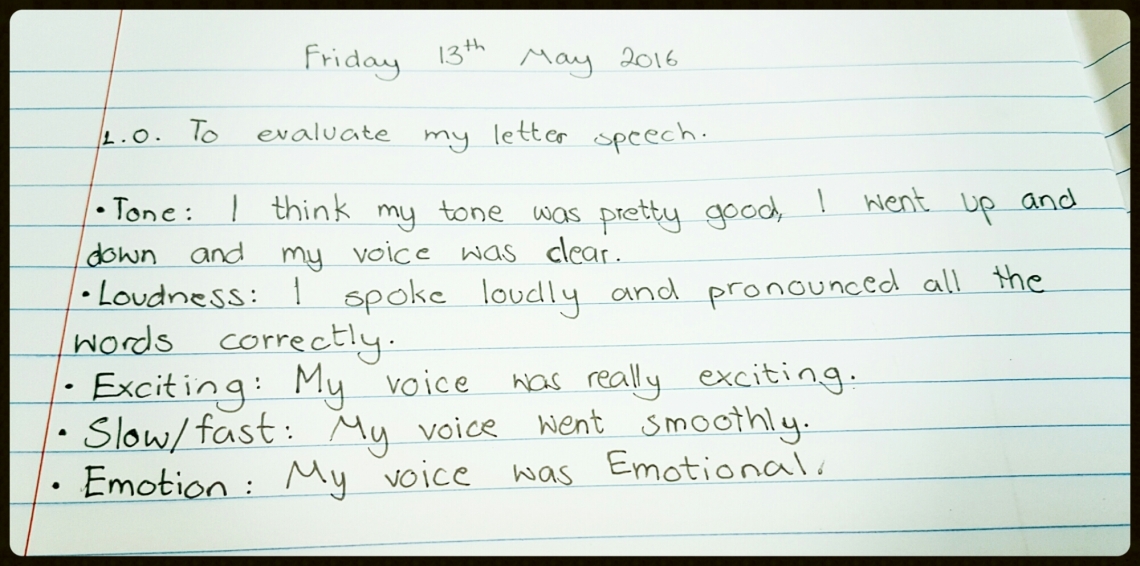 Friday 13th May 2016
L.O. To evaluate my letter speech.
• Tone: I think my tone was pretty good, I went up and
down and my voice was clear.
• Loudness: I spoke loudly and pronounced all the
words correctly.
• Exciting: My voice was really exciting.
• Slow/fast: My voice went smoothly.
• Emotion: My voice was Emotional.